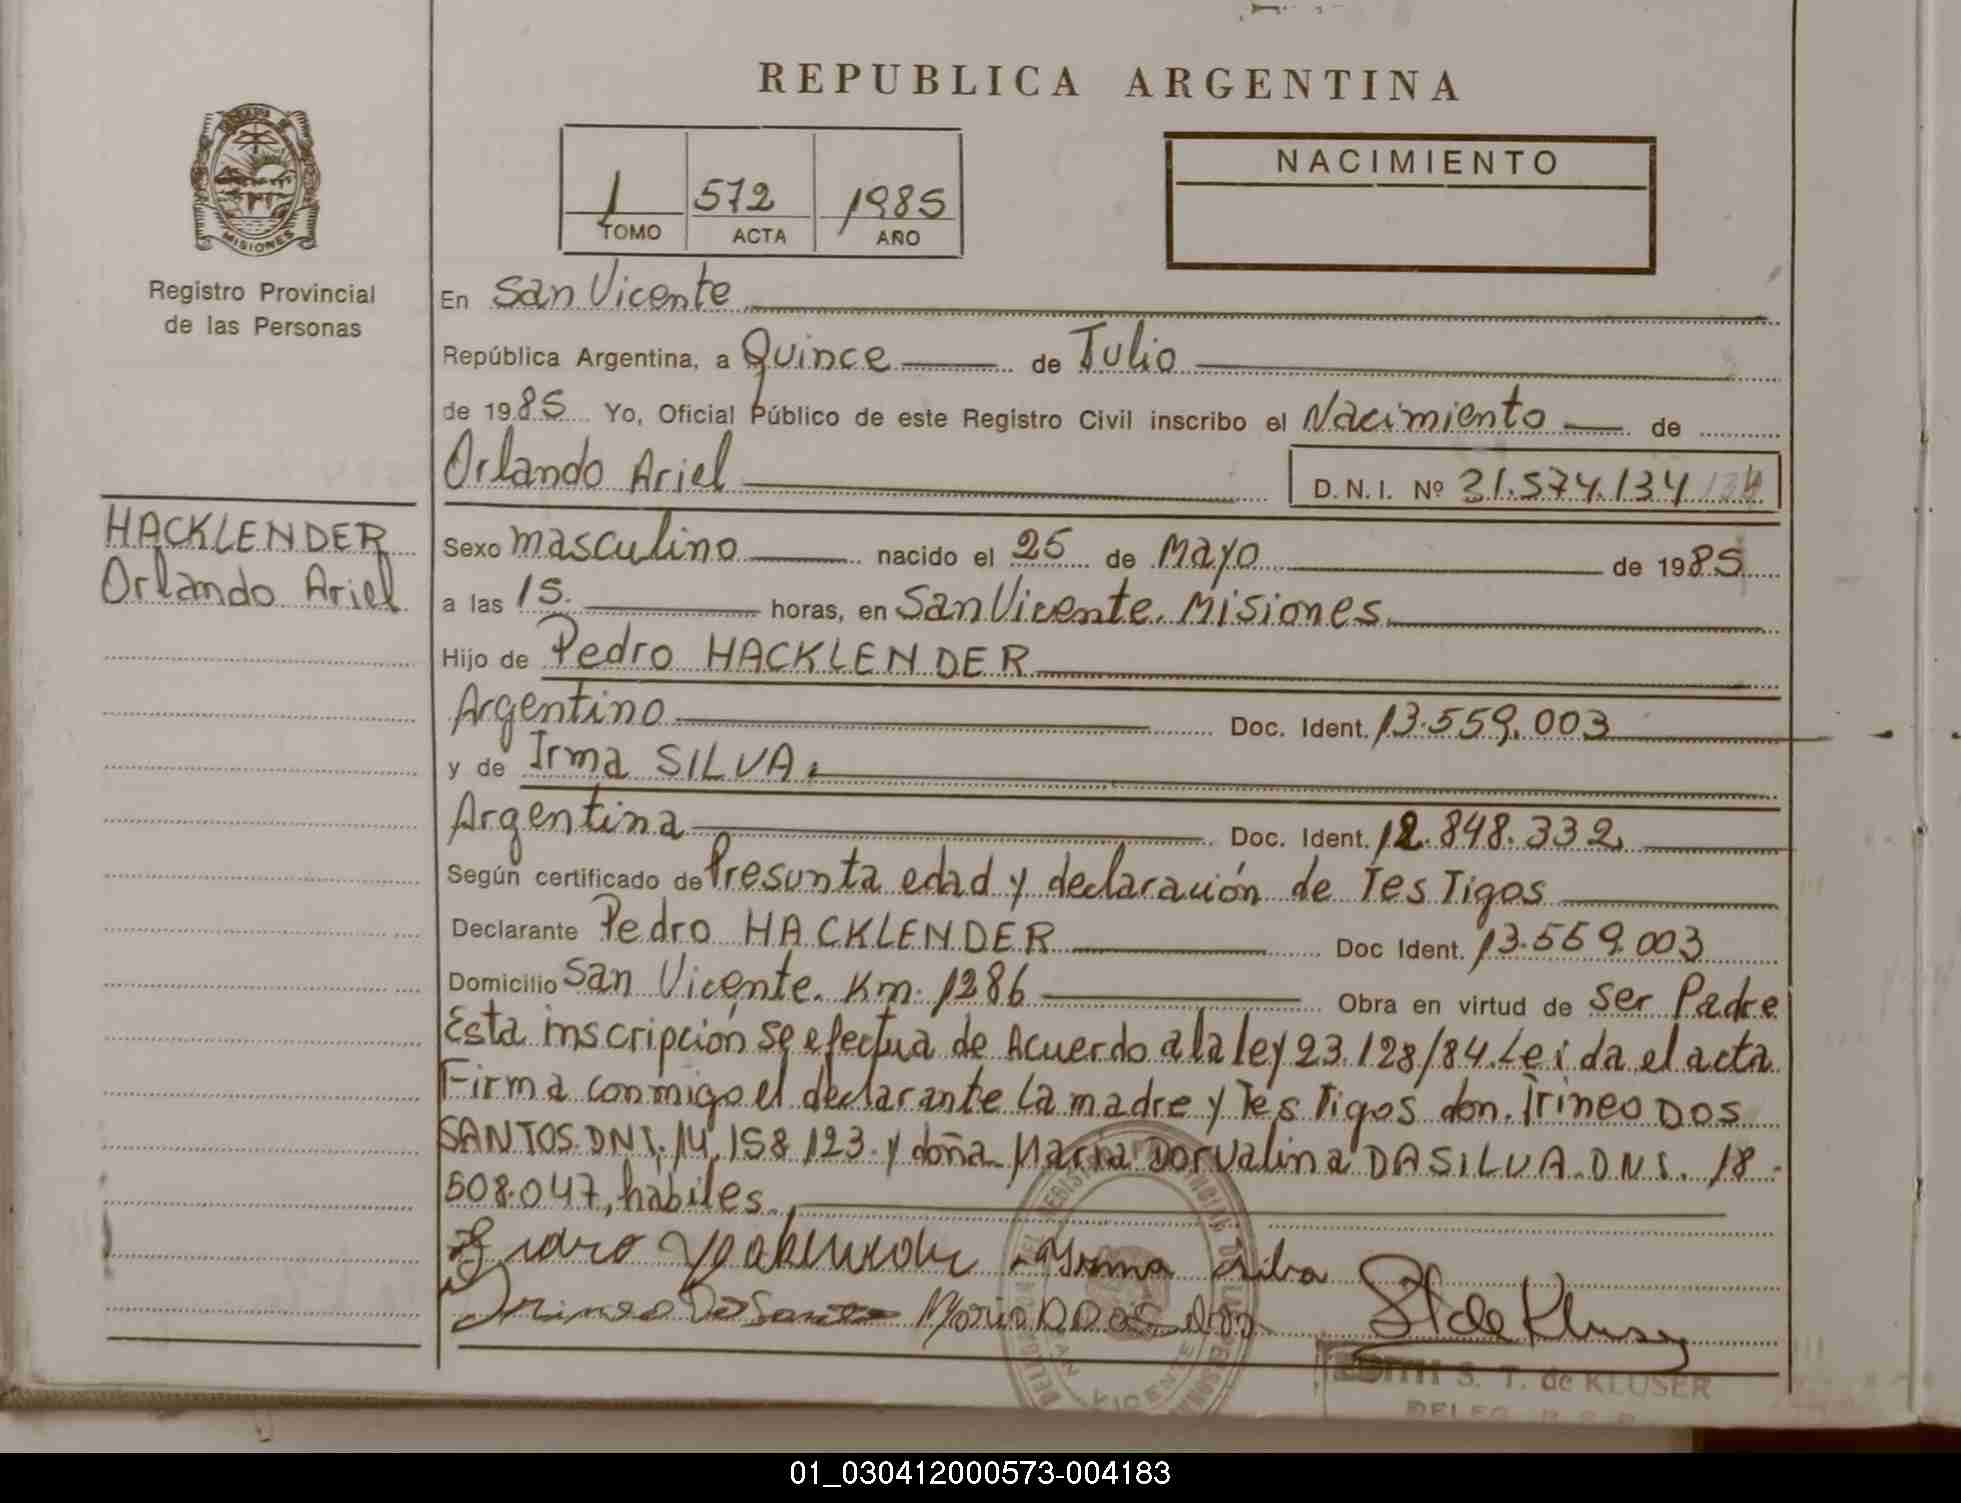 REPUBLICA ARGENTINA
MISIONES
Registro Provincial
de las Personas
1 572 1985
TOMO ACTA AÑO
NACIMIENTO
HACKLENDER
Orlando Ariel
En San Vicente
República Argentina, a Quince de Julio
de 1985 Yo, Oficial Público de este Registro Civil inscribo el Nacimiento de
Orlando Ariel D.N.I. Nº 31.574.134
Sexo masculino nacido el 25 de Mayo de 1985
a las 15. horas, en San Vicente. Misiones.
Hijo de Pedro HACKLENDER
Argentino Doc. Ident. 13.559.003
y de Irma SILVA.
Argentina Doc. Ident. 12.848.332
Según certificado de Presunta edad y declaración de Testigos
Declarante Pedro HACKLENDER Doc Ident. 13.559.003
Domicilio San Vicente. Km. 1286 Obra en virtud de ser Padre
Esta inscripción se efectua de Acuerdo a la ley 23.128/84. Leida el acta
Firma conmigo el declarante la madre y Testigos don. Irineo DOS
SANTOS. DNI. 14.158.123. y doña María Dorvalina DA SILVA. DNI. 18.
508.047, habiles.
Irma Silva
Irineo Dos Santos
St de Kluser
SAN VICENTE
EDITH S. T. de KLUSER
DELEG. R.P.P.
01_030412000573-004183